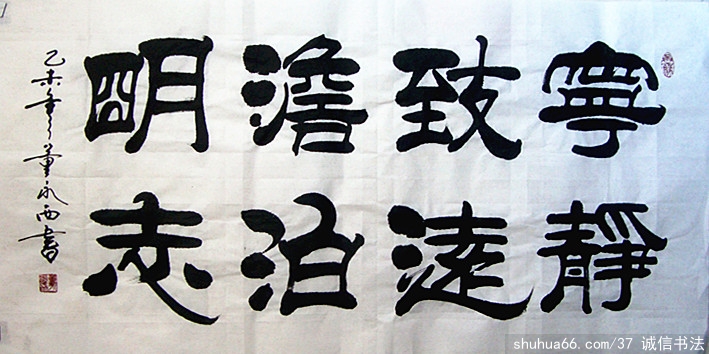 寧靜
致遠
澹泊
朙志
乙未年董永西書
shuhua66.com/37 诚信书法